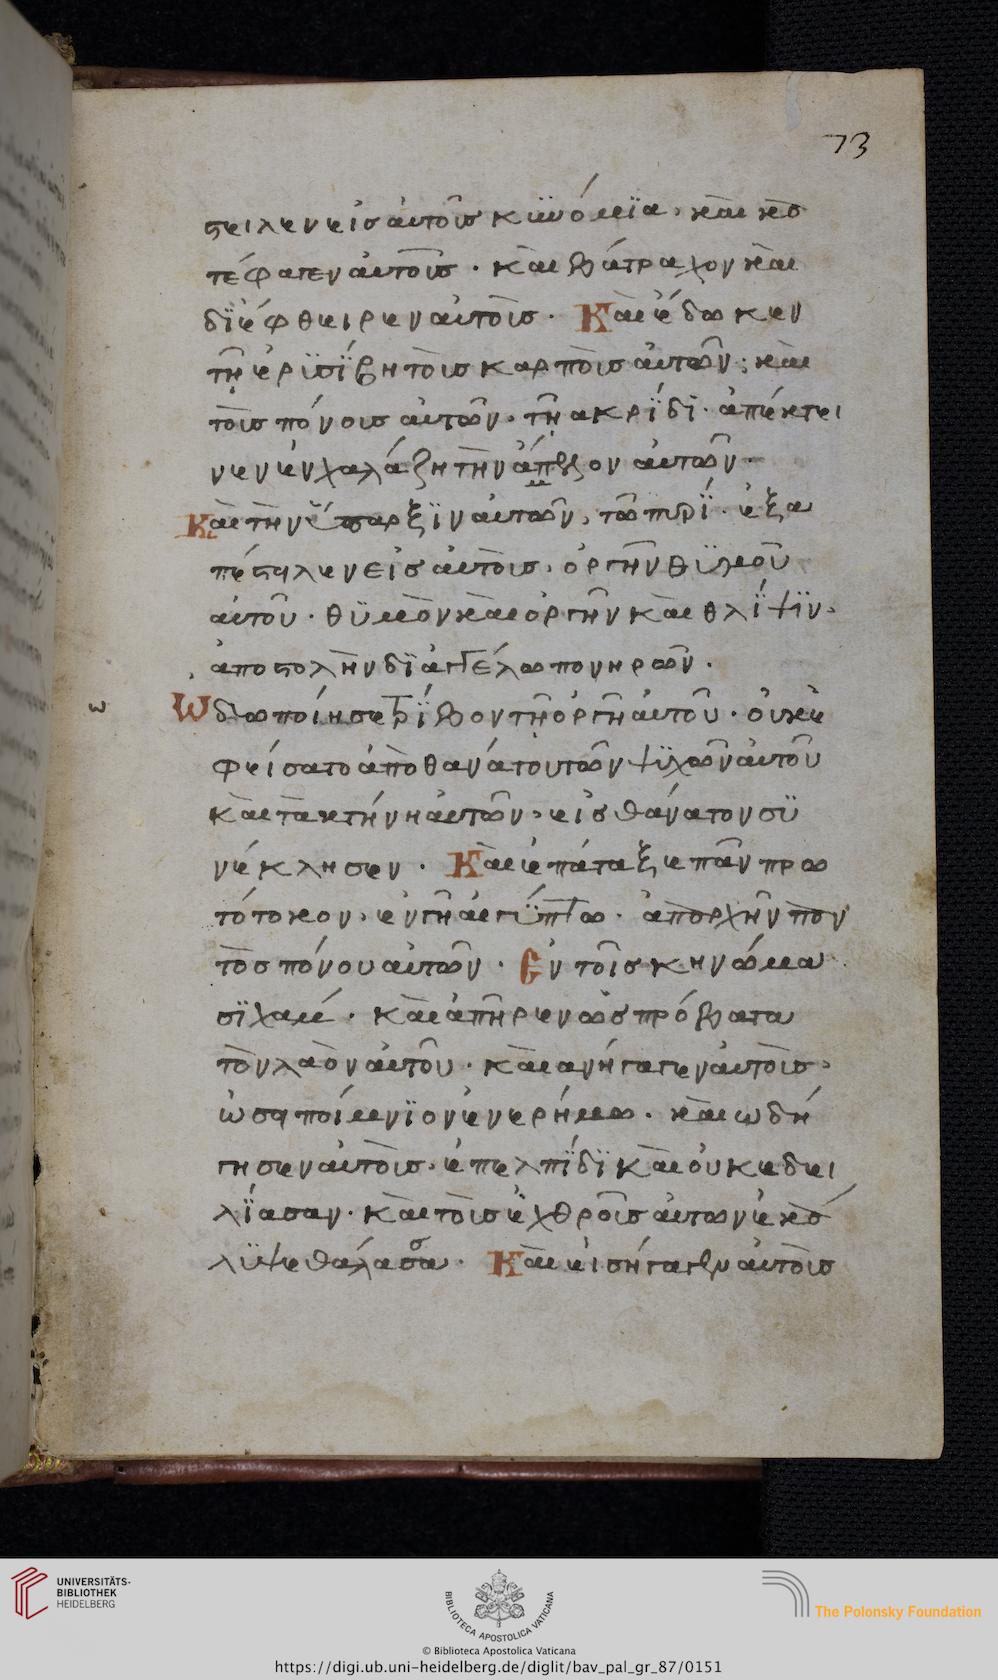 73
στειλεν εἰσ αὐτοῖσ κϋνόμϊα, καὶ κα
τέφαγεν αὐτοῖσ · καὶ βάτραχον καὶ
δϊέφθειρεν αὐτοὶσ · Καὶ ἔδωκεν
τῆ ἐρϊσΐβη τοὶσ καρποὶσ αὐτῶν · καὶ
τοὶσ πόνοισ αὐτῶν · τῆ ακρΐδϊ · ἀπέκτει
νεν ἐν χαλάζη τὴν ἄπελον αὐτῶν ·
Καὶ τὴν ὕπαρξϊν αὐτῶν, τῶ πυρΐ · ἐξα
πέστηλεν εἰσ αὐτοὶσ · ὀργῆν θϋμοῦ
αὐτοῦ · θϋμὸν καὶ ὀργῆν καὶ θλΐψϊν ·
ἀποστολὴν δϊ ἀγγέλω πονηρῶν ·
ω
Ὡδωποίησε τρΐβον τῆ ὀργῆ αὐτοῦ · οὐκ ἐ
φείσατο ἀπὸ θανάτου τῶν ψϋχῶν αὐτοῦ
καὶ τὰ κτήνη αὐτῶν · εἰσ θάνατον σϋ
νέκλησεν · Καὶ ἐπάταξε πᾶν πρω
τότοκον · ἐν γῆ ἀιγϋπτω · ἀπορχῆν πον
τοσ πόνου αὐτῶν · Ἐν τοῖσ κηνώμα
σϊ χαμ · καὶ ἀπῆρεν ωσ πρόβατα
τὸν λαὸν αὐτοῦ · καὶ ανήγαγεν αὐτοὶσ ·
ὡσ η ποίμνϊον ἐν ερήμω · καὶ ωδή
γησεν αὐτοὶσ · ἐπ ελπΐδϊ καὶ οὐκ εδει
λΐασαν · καὶ τοὶσ ἐχθροῖσ αὐτων ἐκά
λϋψε θαλάσσα · Καὶ εἰσήγαγεν αὐτοὶσ
UNIVERSITÄTS-
BIBLIOTHEK
HEIDELBERG
BIBLIOTECA APOSTOLICA VATICANA
The Polonsky Foundation
© Biblioteca Apostolica Vaticana
https://digi.ub.uni-heidelberg.de/diglit/bav_pal_gr_87/0151